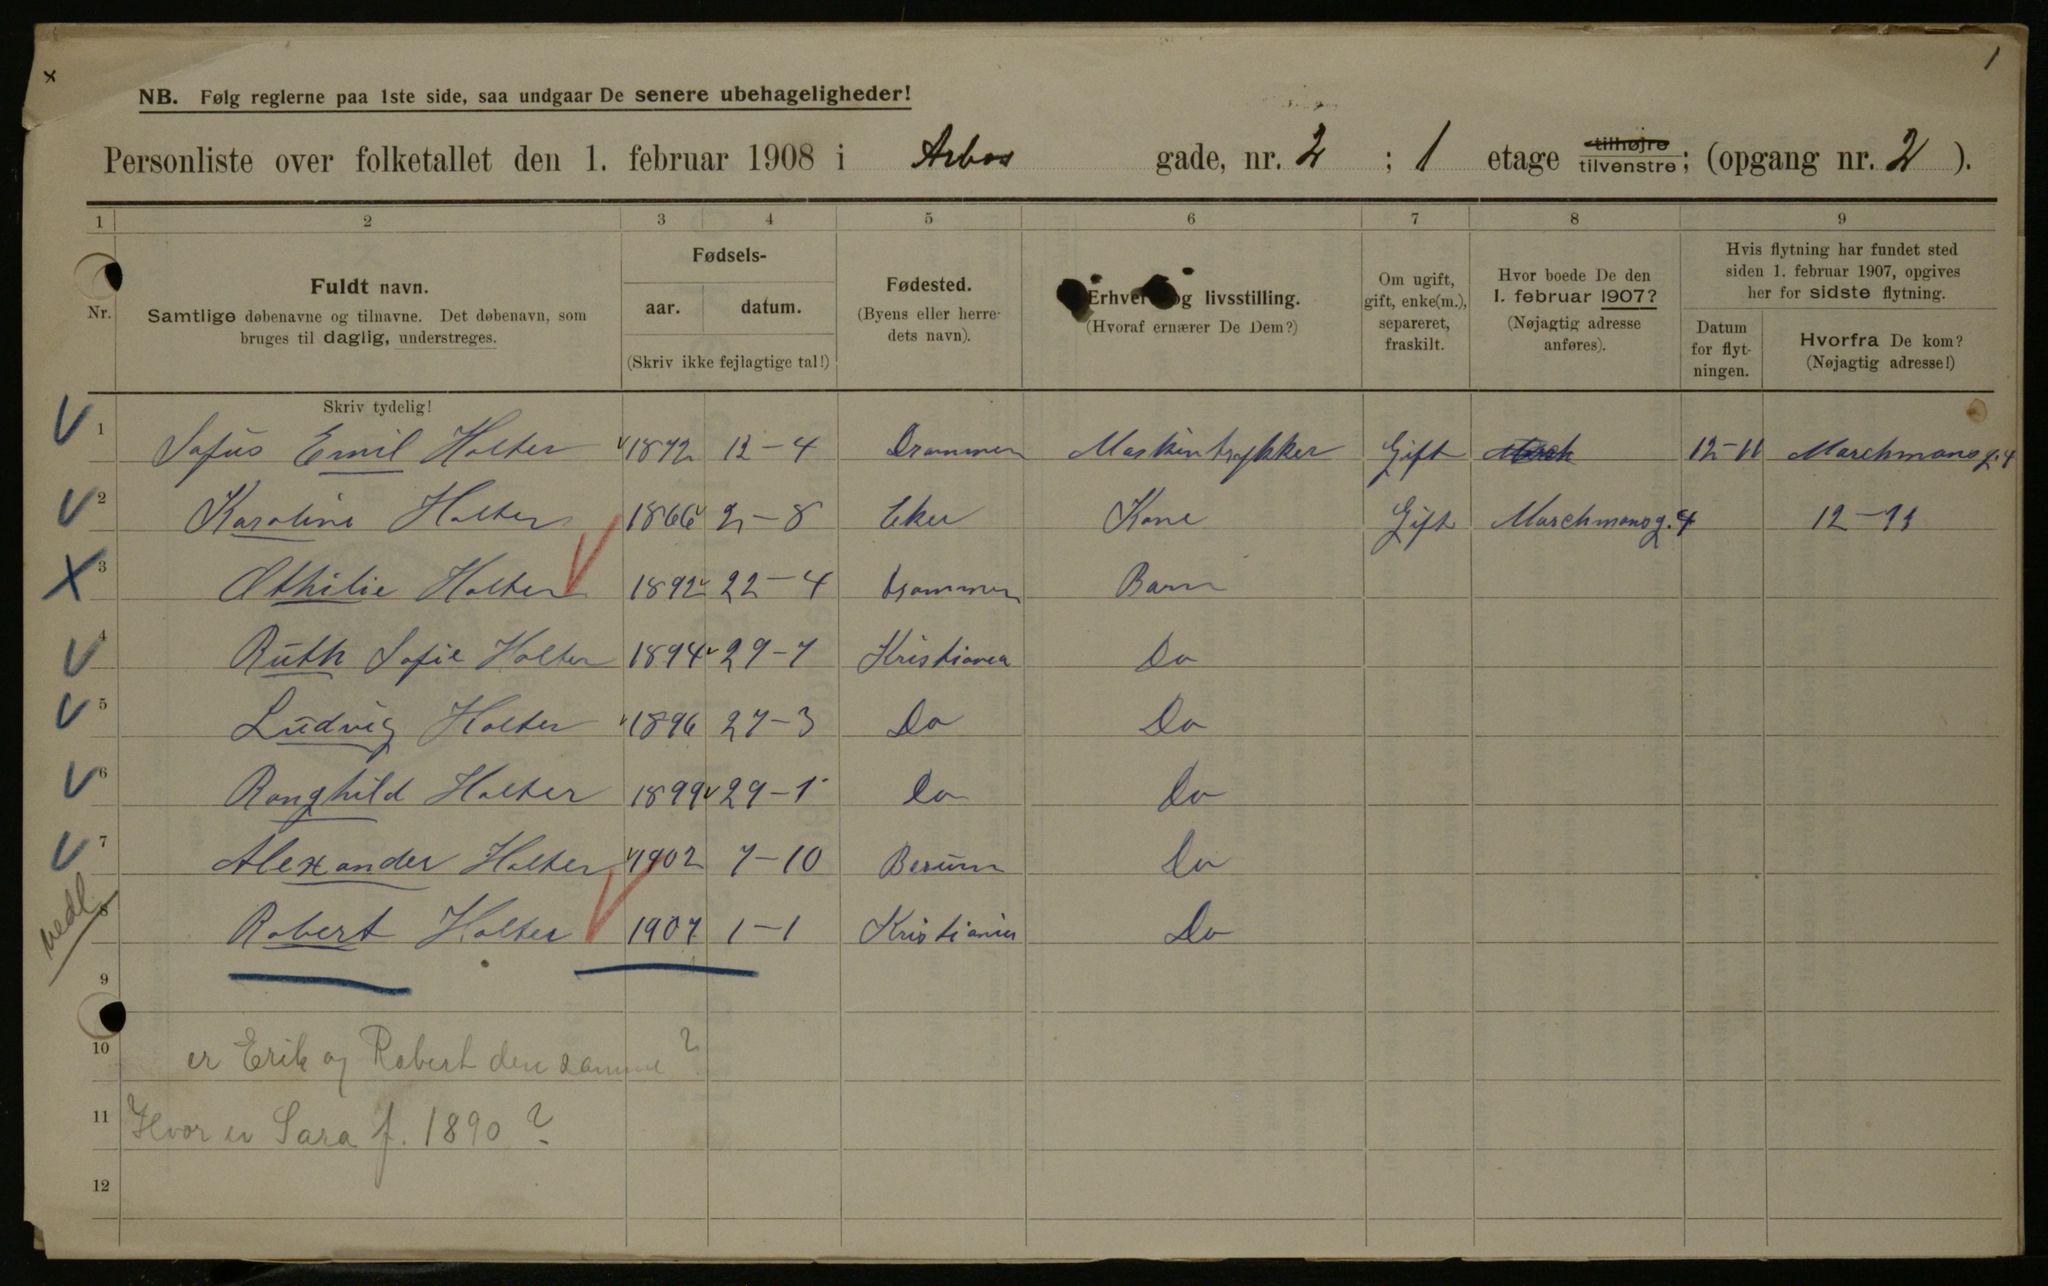 1
x
NB. Følg reglerne paa 1ste side, saa undgaar De senere ubehageligheder!
Personliste over folketallet den 1. februar 1908 i Arbos gade, nr. 2 ; 1 etage tilhøjre tilvenstre; (opgang nr. 2 ).
1 2 3 4 5 6 7 8 9
Nr.
Fuldt navn.
Samtlige døbenavne og tilnavne. Det døbenavn, som
bruges til daglig, understreges.
Skriv tydelig!
Fødsels-
aar. datum.
(Skriv ikke fejlagtige tal!)
Fødested.
(Byens eller herre-
dets navn).
Erhverv og livsstilling.
(Hvoraf ernærer De Dem?)
Om ugift,
gift, enke(m.),
separeret,
fraskilt.
Hvor boede De den
1. februar 1907?
(Nøjagtig adresse
anføres).
Hvis flytning har fundet sted
siden 1. februar 1907, opgives
her for sidste flytning.
Datum
for flyt-
ningen.
Hvorfra De kom?
(Nøjagtig adresse!)
1 Sofus Emil Holter 1872 12-4 Drammen Maskintrykker Gift 12-11 Marchmansg. 4
2 Karoline Holter 1866 2-8 Eker Kone Gift Marchmansg. 4 12-11
3 Othilie Holter 1892 22-4 Drammen Barn
4 Ruth Sofie Holter 1894 29-7 Kristiania Do
5 Ludvig Holter 1896 27-3 Do Do
6 Ranghild Holter 1899 29-1 Do Do
7 Alexander Holter 1902 7-10 Berum Do
nedl.
8 Robert Holter 1907 1-1 Kristiania Do
9
10 er Erik og Robert den samme?
11 Hvor er Sara f. 1890?
12